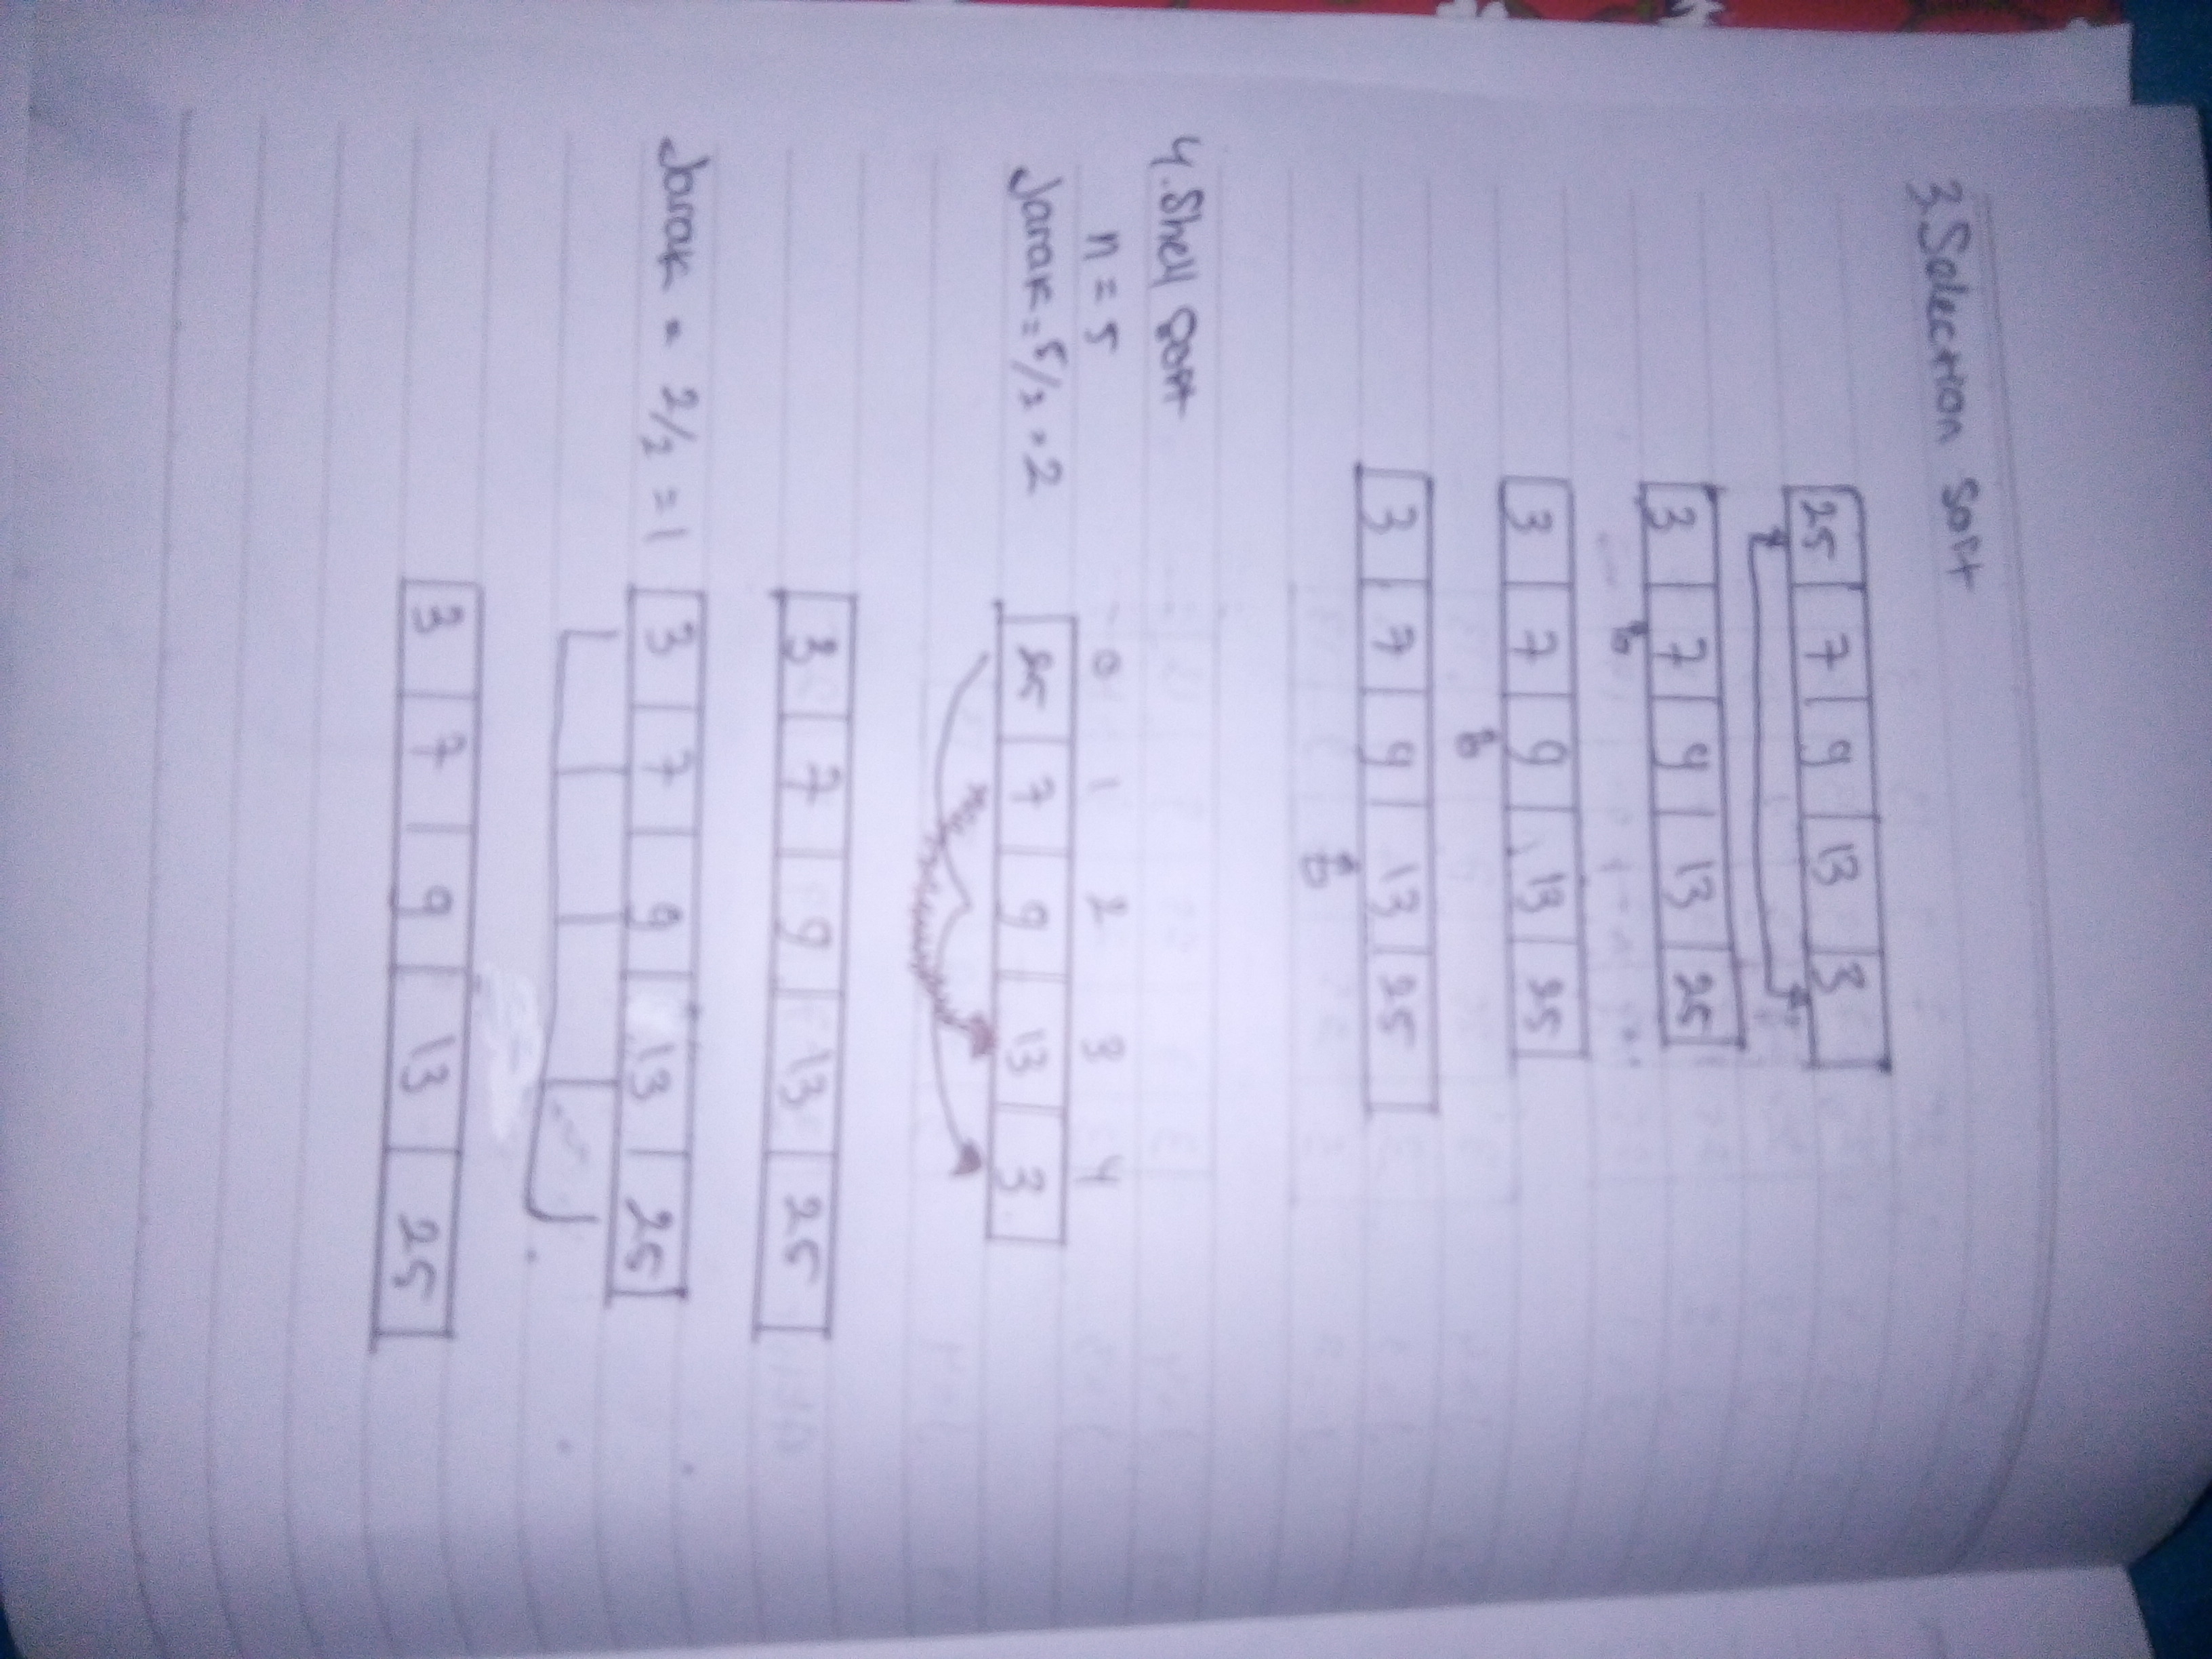 3. Selection Sort
25 7 9 13 3
3 7 9 13 25
3 7 9 13 25
3 7 9 13 25
4. Shell Sort
n = 5
0 1 2 3 4
Jarak = 5/2 = 2 25 7 9 13 3
3 7 9 13 25
Jarak = 2/2 = 1 3 7 9 13 25
3 7 9 13 25